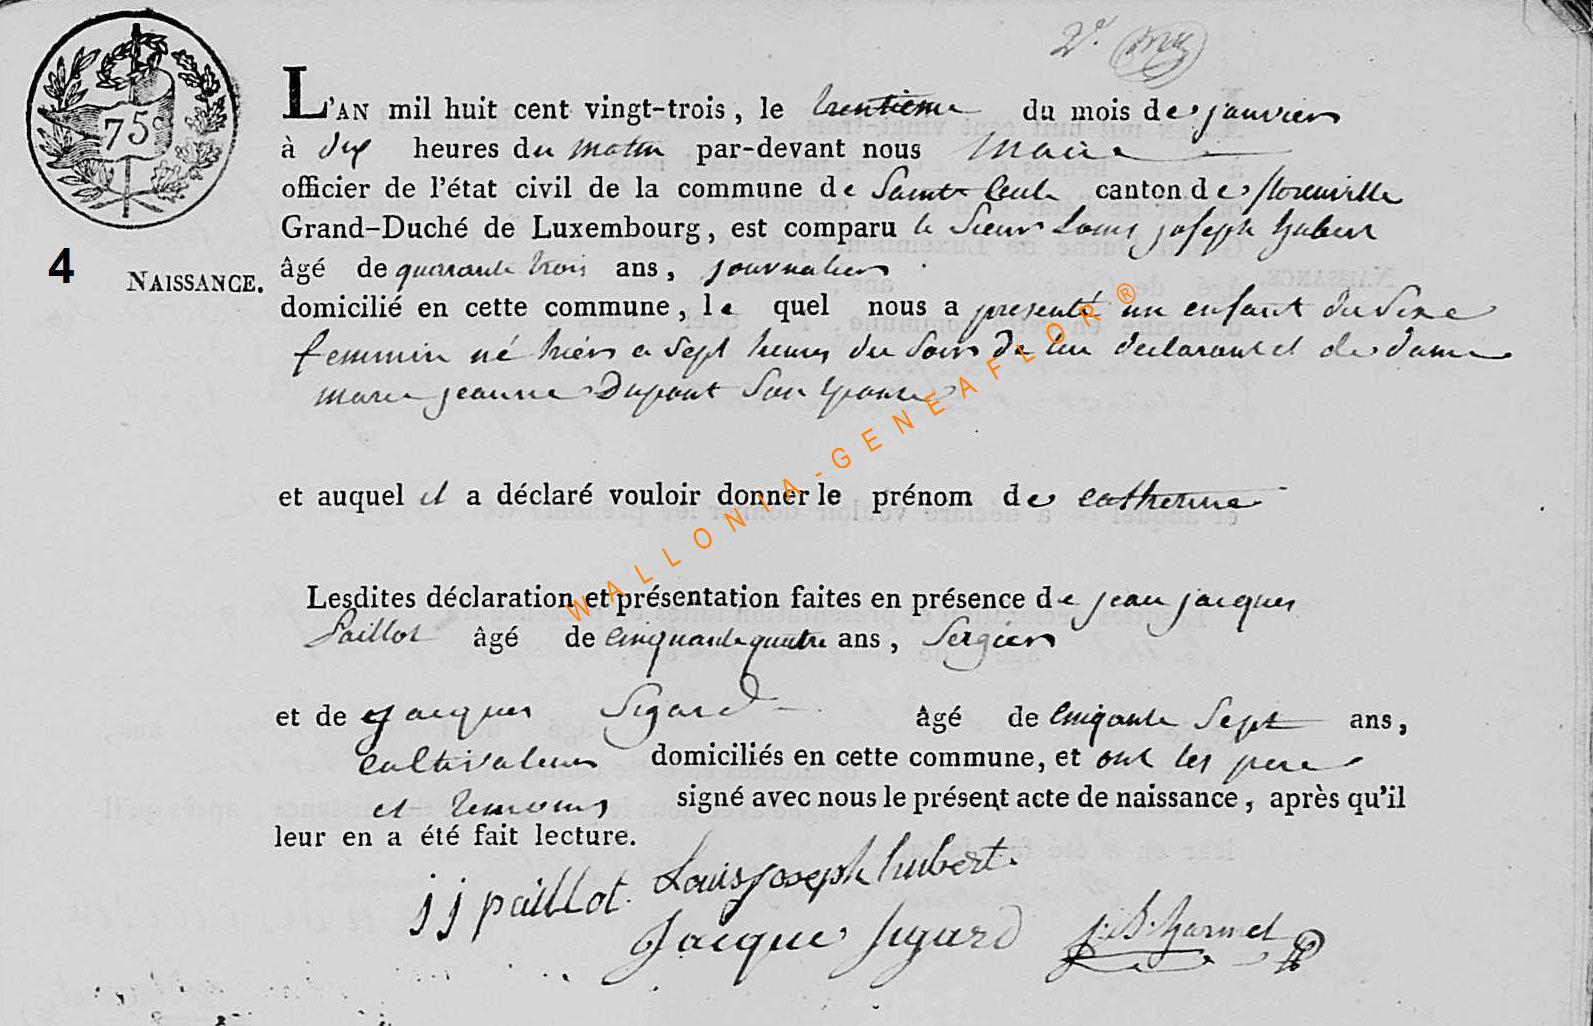 2e.
75c
L'AN mil huit cent vingt-trois, le trentieme du mois de janvier
à dix heures du matin par-devant nous Maire
officier de l'état civil de la commune de Sainte Cecile canton de florenville
Grand-Duché de Luxembourg, est comparu le Sieur Louis joseph hubert
4 NAISSANCE. âgé de quarante trois ans, journalier
domicilié en cette commune, le quel nous a presenté un enfant du Sexe
feminin né hier a Sept heures du Soir de lui declarant et de dame
marie jeanne Dupont Son epouse
et auquel il a déclaré vouloir donner le prénom de catherine
Lesdites déclaration et présentation faites en présence de jean jacques
Paillot âgé de cinquante quatre ans, Sergier
et de jacques Sigard âgé de cinqante Sept ans,
cultivateur domiciliés en cette commune, et ont les pere
et temoins signé avec nous le présent acte de naissance, après qu'il
leur en a été fait lecture.
j j paillot Louis Joseph hubert
Jacque Sigard j. B. harnet
WALLONIA-GENEAFLOR®